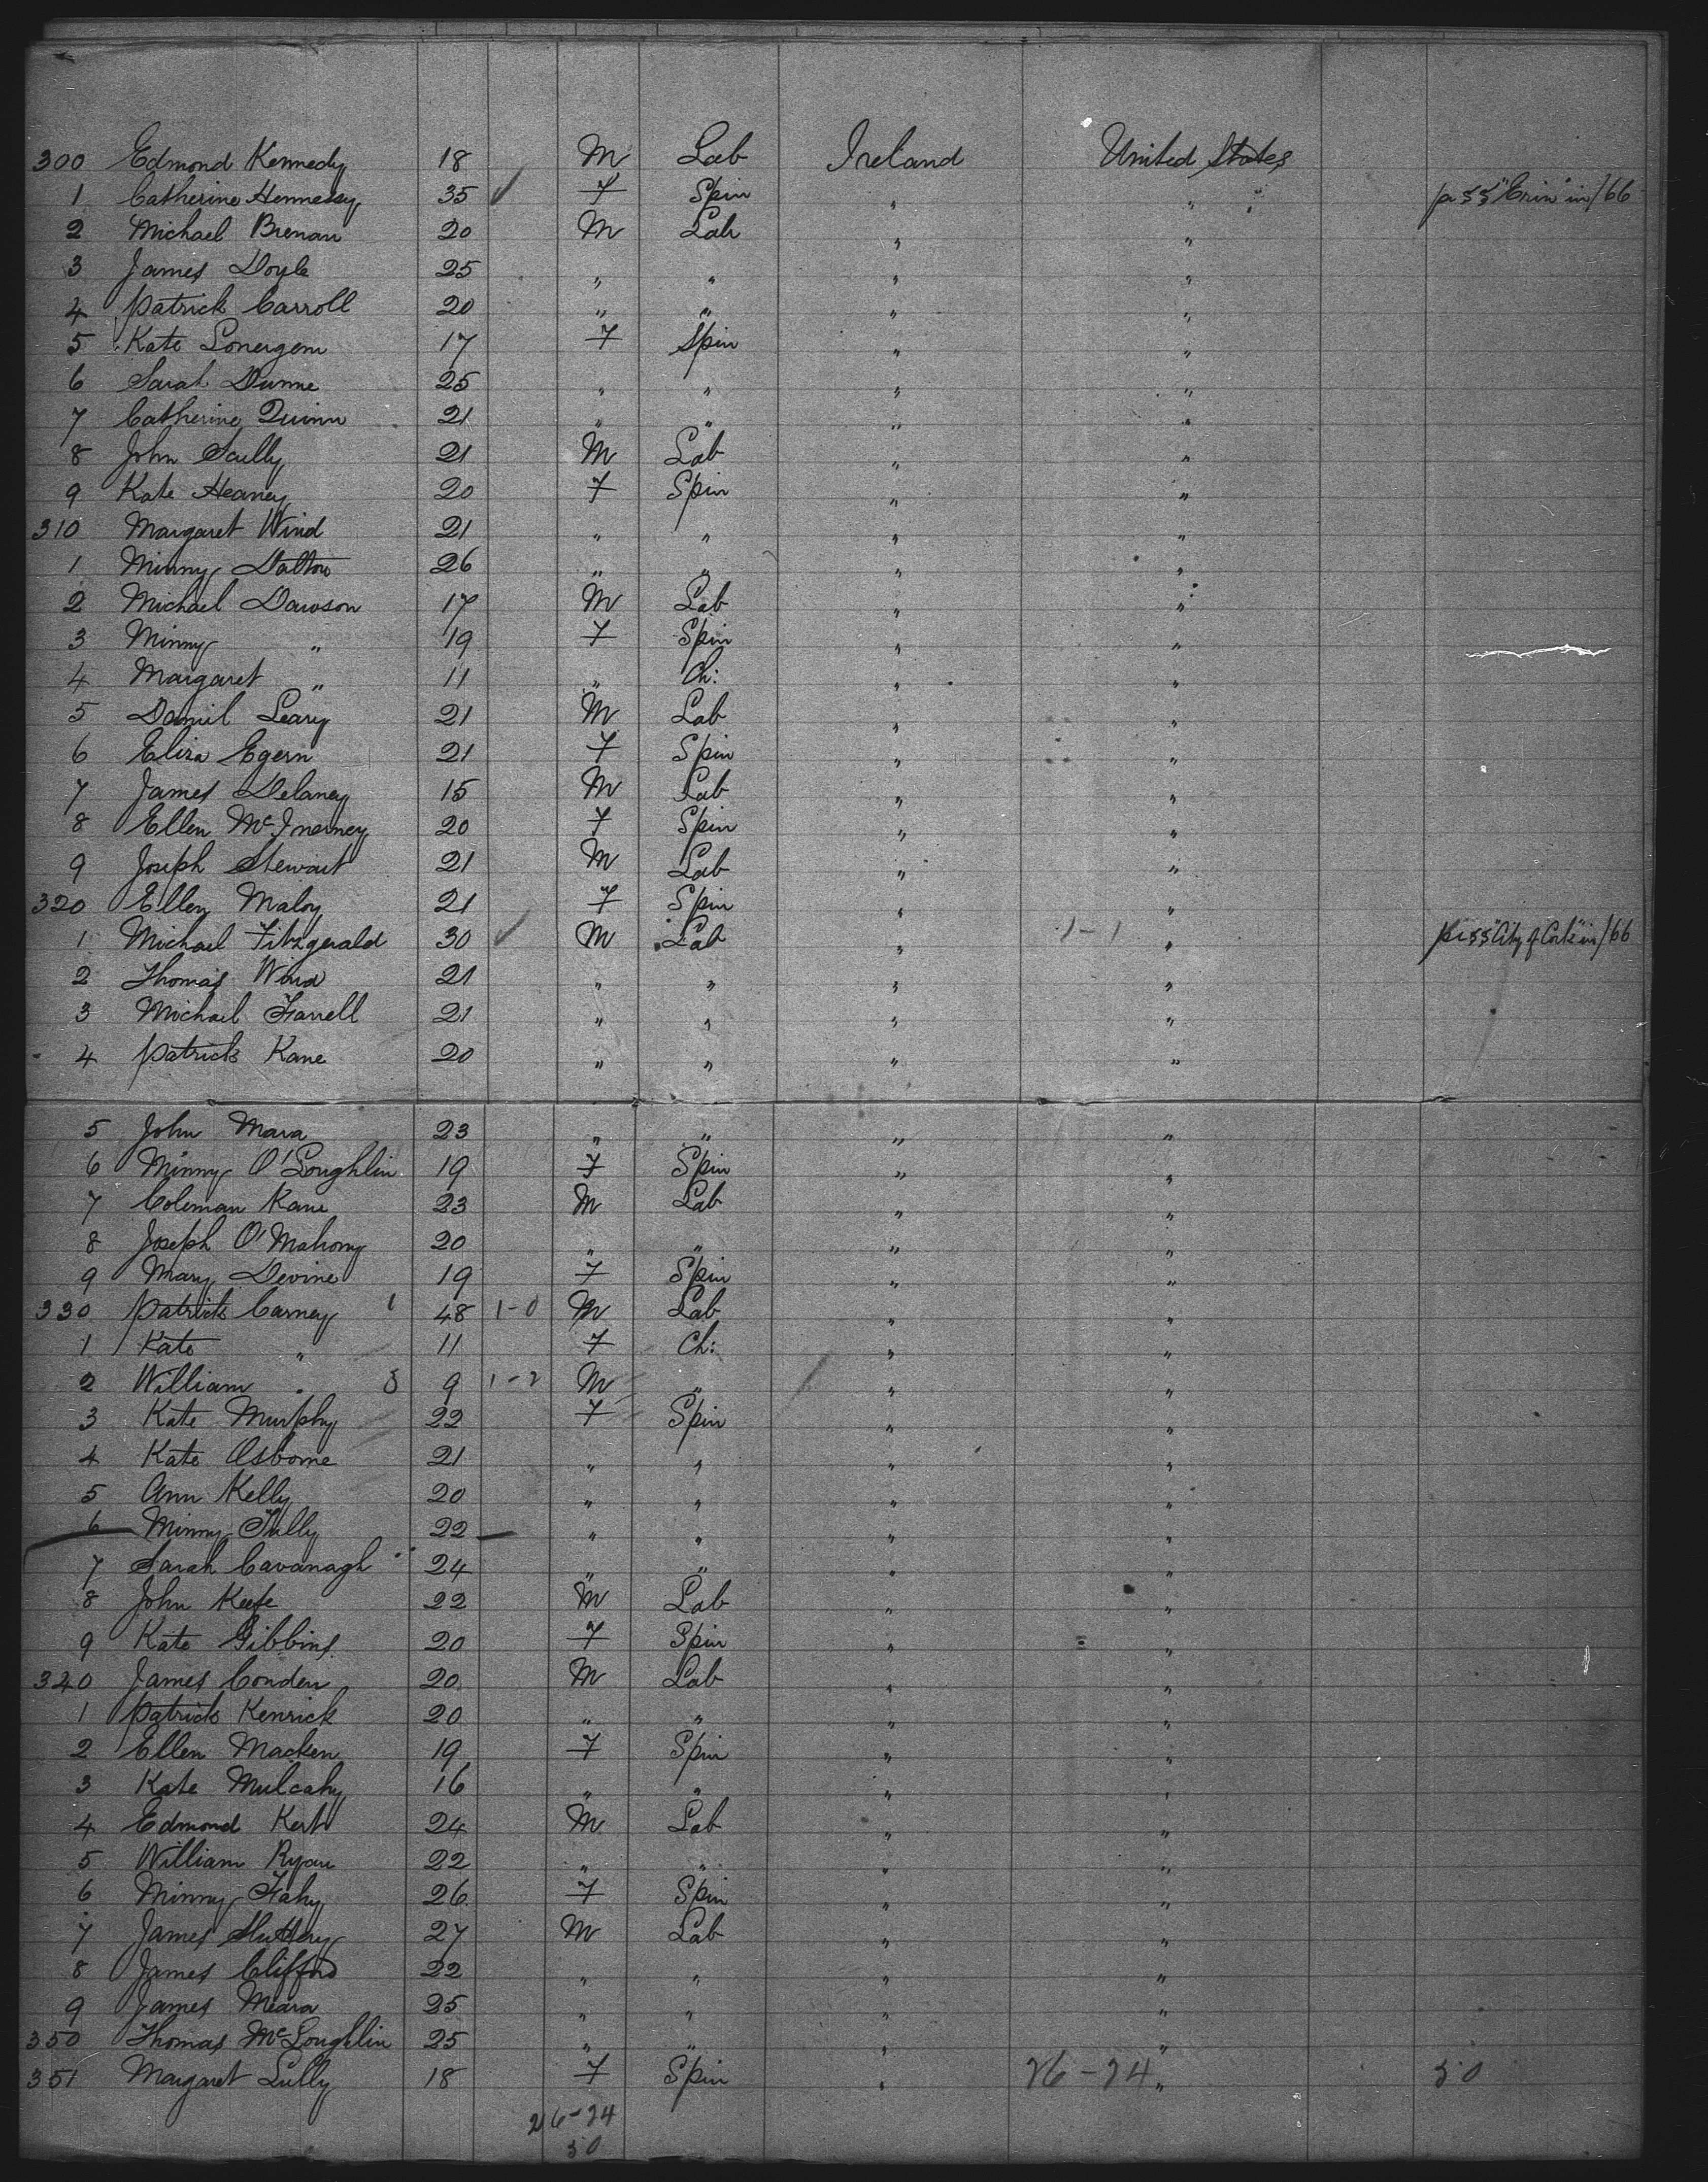 300 Edmond Kennedy 18 M Lab Ireland United States
1 Catherine Hennessy 35 ✓ F Spin " " pr SS "Erin" in /66
2 Michael Brenan 20 M Lab " "
3 James Doyle 25 " " " "
4 Patrick Carroll 20 " " " "
5 Kate Lonergem 17 F Spin " "
6 Sarah Dunne 25 " " " "
7 Catherine Quinn 21 " " " "
8 John Scully 21 M Lab " "
9 Kate Heaney 20 F Spin " "
310 Margaret Wind 21 " " " "
1 Minny Dalton 26 " " " "
2 Michael Dawson 17 M Lab " "
3 Minny " 19 F Spin " "
4 Margaret " 11 " Ch: " "
5 Daniel Leary 21 M Lab " "
6 Eliza Egern 21 F Spin " "
7 James Delaney 15 M Lab " "
8 Ellen McInerney 20 F Spin " "
9 Joseph Stewart 21 M Lab " "
320 Ellen Maloy 21 F Spin " "
1 Michael Fitzgerald 30 ✓ M Lab " 1-1 " pr SS "City of Cork" in /66
2 Thomas Wind 21 " " " "
3 Michael Farrell 21 " " " "
4 Patrick Kane 20 " " " "
5 John Mara 23 " " " "
6 Minny O'Loughlin 19 F Spin " "
7 Coleman Kane 23 M Lab " "
8 Joseph O'Mahony 20 " " " "
9 Mary Devine 19 F Spin " "
330 Patrick Carney 1 48 1-0 M Lab " "
1 Kate " 11 F Ch: " "
2 William " 9 1-2 M " " "
3 Kate Murphy 22 F Spin " "
4 Kate Osborne 21 " " " "
5 Ann Kelly 20 " " " "
6 Minny Tully 22 " " " "
7 Sarah Cavanagh 24 " " " "
8 John Keefe 22 M Lab " "
9 Kate Gibbins 20 F Spin " "
340 James Conden 20 M Lab " "
1 Patrick Kenrick 20 " " " "
2 Ellen Macken 19 F Spin " "
3 Kate Mulcahy 16 " " " "
4 Edmond 24 M Lab " "
5 William Ryan 22 " " " "
6 Minny Fahy 26 F Spin " "
7 James Slattery 27 M Lab " "
8 James Clifford 22 " " " "
9 James Meara 25 " " " "
350 Thomas McLoughlin 25 " " " "
351 Margaret Lully 18 F Spin " 26-24 " 50
26-24
50